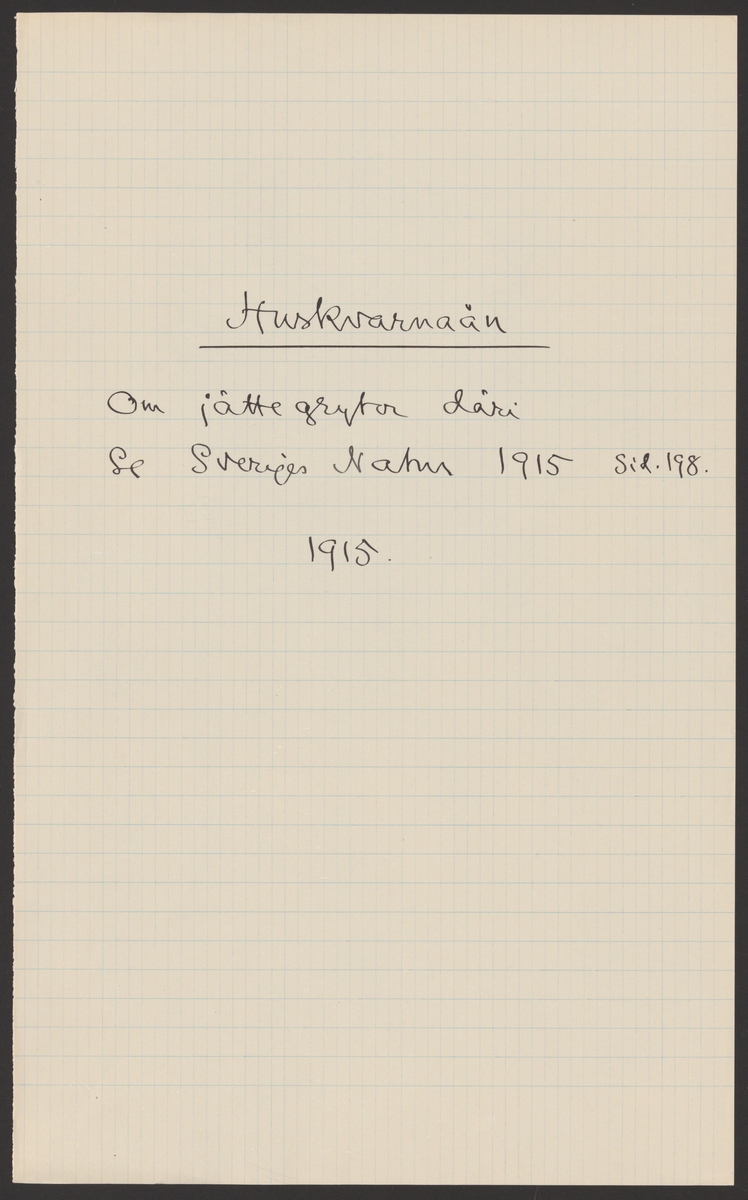 Huskvarnaån
Om jättegrytor däri
Se Sveriges Natur 1915 Sid. 198.
1915.